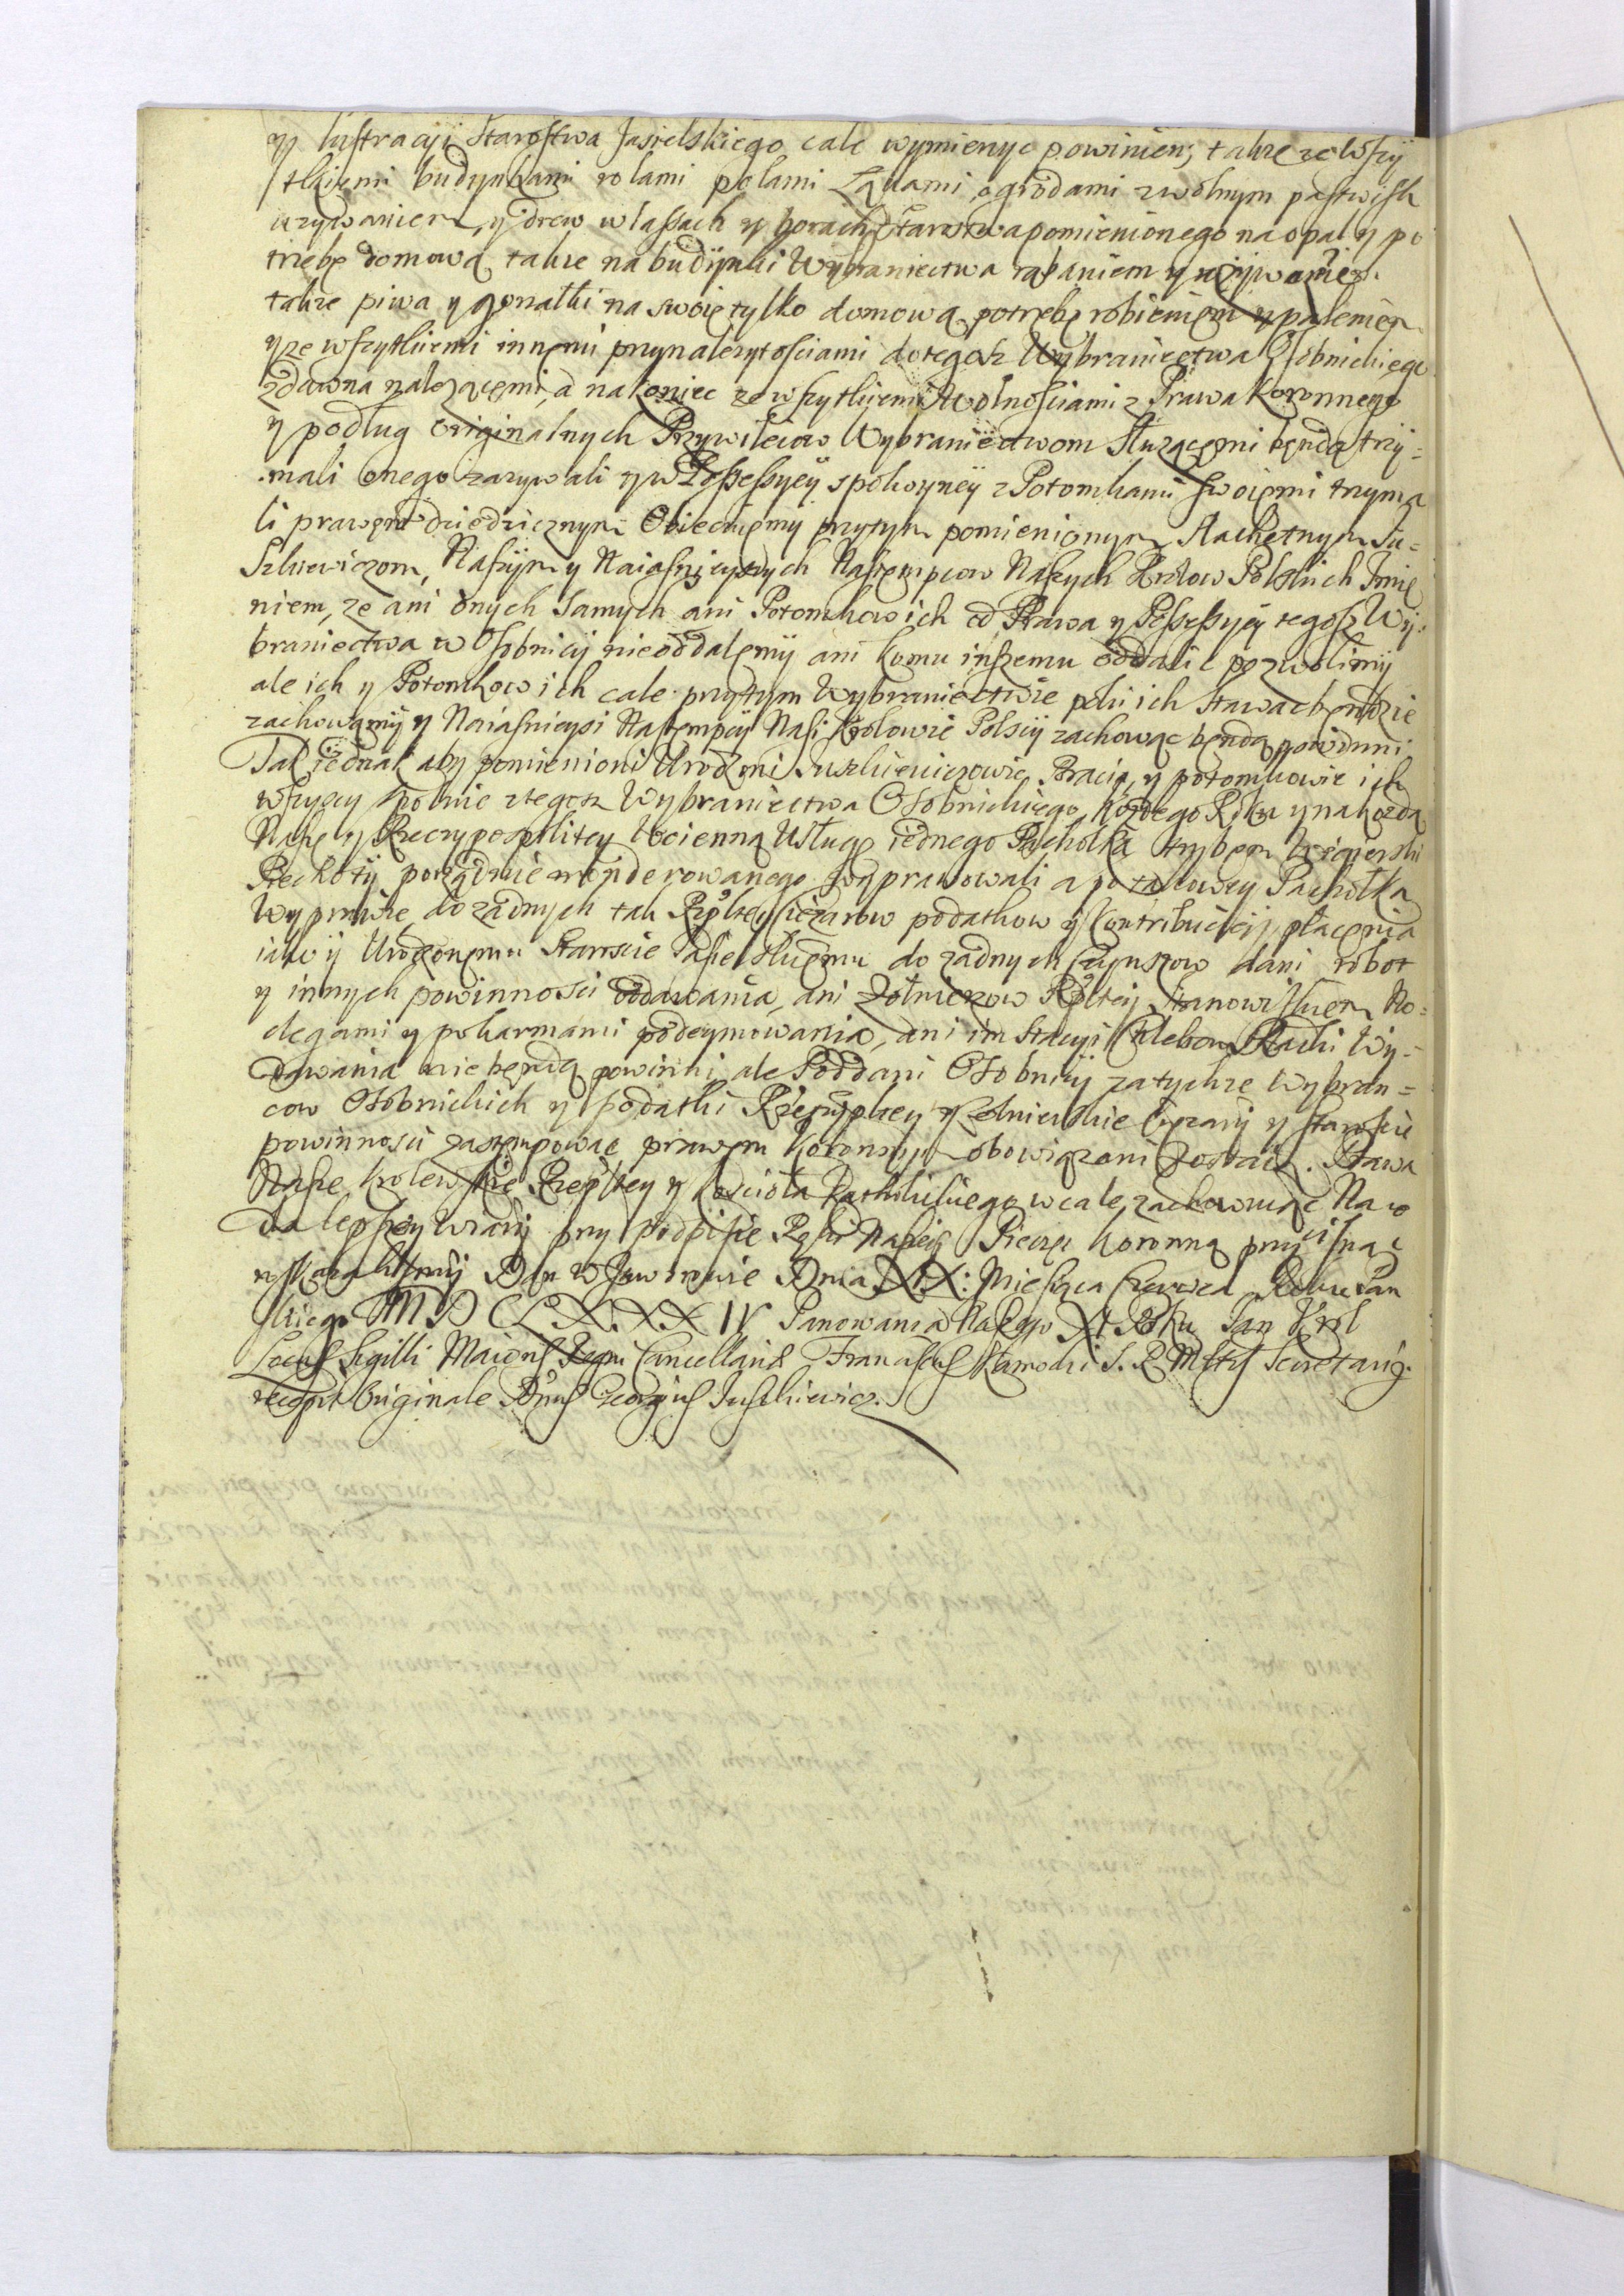 y lustracyi Starostwa Jasielskiego cale wymienyc powinien, takze ze wszy
stkiemi budynkami rolami polami Łąkami ogrodami zwolnym pastwisk
uzywaniem, y drew w lassach y borach Starostwa pomienionego na opał y po
trzebę domową takze na budynki Wybraniectwa rąbaniem y uzywaniem
takze piwa y gorzałki na swoię tylko domową potrzebę robieniem y paleniem
y ze wszytkiemi innemi przynalezytosciami do tegosz Wybraniectwa Osobnickiego
zdawna nalezącemi, a nakoniec ze wszytkiemi Wolnosciami z Prawa Koronnego
y podług originalnych Przywileiow Wybraniectwom służącemi będą trzy=
mali onego zazywali y w Possessyey spokoyney z Potomkami swoiemi trzyma
li prawem dziedzicznym Obiecuiemy przytym pomienionym szlachetnym Ju=
szkiewiczom, Naszym y Naiasnieyszych Następcow Naszych Krolow Polskich Imie
niem, ze ani onych samych ani Potomkow ich od Prawa y Possessyey tegosz Wy=
braniectwa w Osobnicy nie oddalemy ani komu inszemu oddalic pozwolimy
ale ich y Potomkow ich cale przy tym Wybraniectwie poki ich stawac bendzie
zachowamy y Naiasnieysi Nastempcy Nasi Krolowie Polscy zachowac bendą powinni
Tak iednak aby pomienioni Urodzeni Juszkiewiczowie Bracia y potomkowie ich
wszyscy spolnie ztegosz Wybraniectwa Osobnickiego kozdego Roku y na kozdą
Naszę y Rzeczypospolitey Woienną Usługę iednego Pachołka trybem Węgierski
Piechoty porządnie monderowanego wyprawowali a po takowey Pachołka
Wyprawie do zadnych tak Rzpltey ciężarow podatkow y Kontribucyi płacenia
iako y Urodzonemu Staroscie Jasielskiemu do zadnych czynszow dani robot
y innych powinnosci oddawania, ani Żołnierzow Rzpltey stanowiskiem No=
clegami y pokarmami podeymowania, ani im Stacyi Chlebow Rachi Wy=
dawania nie będą powinni, ale Poddani Osobnicy za tychze Wybran=
cow Osobnickich y podatki Rzeczypltey y Zołnierskie Cięzary y staroscie
powinnosci zastempowac prawem Koronnym obowiązani zostaią. Prawa
Nasze Krolewskie Rzepltey y Koscioła Katholickiego w cale zachowuiąc Na co
dla lepszey Wiary przy podpisie Ręki Naszey Pieczęc Koronną przycisnąc
rozkazalismy Dan w Jaworowie Dnia XIX: Miesiąca Czerwca Roku Pan
skiego M D C L X X X IV Panowania Naszego XI Roku Jan Krol
Locus Sigilli Maioris Regni Cancellariæ Franciscus S. R. Mttis Secretariq.
recepit Originale Dnus Georgius Juszkiewicz.